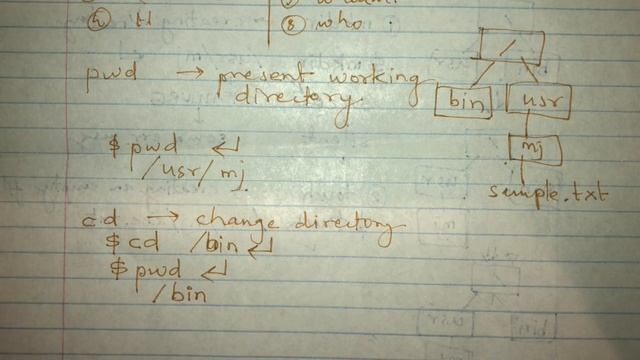 ⑧ who
pwd → present working
directory
$ pwd ↵
/usr/mj
cd → change directory
$ cd /bin ↵
$ pwd ↵
/bin
/
bin usr
mj
sample.txt